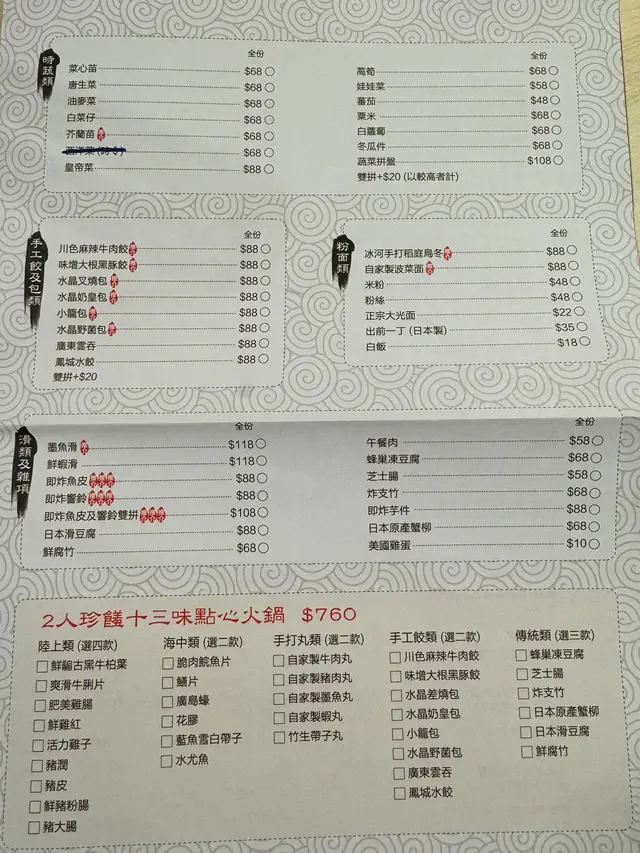 時蔬類
全份
菜心苗 $68
唐生菜 $68
油麥菜 $68
白菜仔 $68
芥蘭苗 $68
$68
皇帝菜 $88
全份
萵筍 $68
娃娃菜 $58
蕃茄 $48
粟米 $68
白蘿蔔 $68
冬瓜件 $68
蔬菜拼盤 $108
雙拼+$20 (以較高者計)
手工餃及包類
全份
川色麻辣牛肉餃 $88
味增大根黑豚餃 $88
水晶叉燒包 $88
水晶奶皇包 $88
小籠包 $88
水晶野菌包 $88
廣東雲吞 $88
鳳城水餃 $88
雙拼+$20
粉麵類
全份
冰河手打稻庭烏冬 $88
自家製菠菜面 $88
米粉 $48
粉絲 $48
正宗大光面 $22
出前一丁 (日本製) $35
白飯 $18
滑類及雜項
全份
墨魚滑 $118
鮮蝦滑 $118
即炸魚皮 $88
即炸響鈴 $88
即炸魚皮及響鈴雙拼 $108
日本滑豆腐 $88
鮮腐竹 $68
全份
午餐肉 $58
蜂巢凍豆腐 $68
芝士腸 $58
炸支竹 $68
即炸芋件 $88
日本原產蟹柳 $68
美國雞蛋 $10
2人珍饈十三味點心火鍋 $760
陸上類 (選四款)
鮮騸古黑牛柏葉
爽滑牛脷片
肥美雞腸
鮮雞紅
活力雞子
豬潤
豬皮
鮮豬粉腸
豬大腸
海中類 (選二款)
脆肉鯇魚片
鱔片
廣島蠔
花膠
藍魚雪白帶子
水尤魚
手打丸類 (選二款)
自家製牛肉丸
自家製豬肉丸
自家製墨魚丸
自家製蝦丸
竹生帶子丸
手工餃類 (選二款)
川色麻辣牛肉餃
味增大根黑豚餃
水晶差燒包
水晶奶皇包
小籠包
水晶野菌包
廣東雲吞
鳳城水餃
傳統類 (選三款)
蜂巢凍豆腐
芝士腸
炸支竹
日本原產蟹柳
日本滑豆腐
鮮腐竹